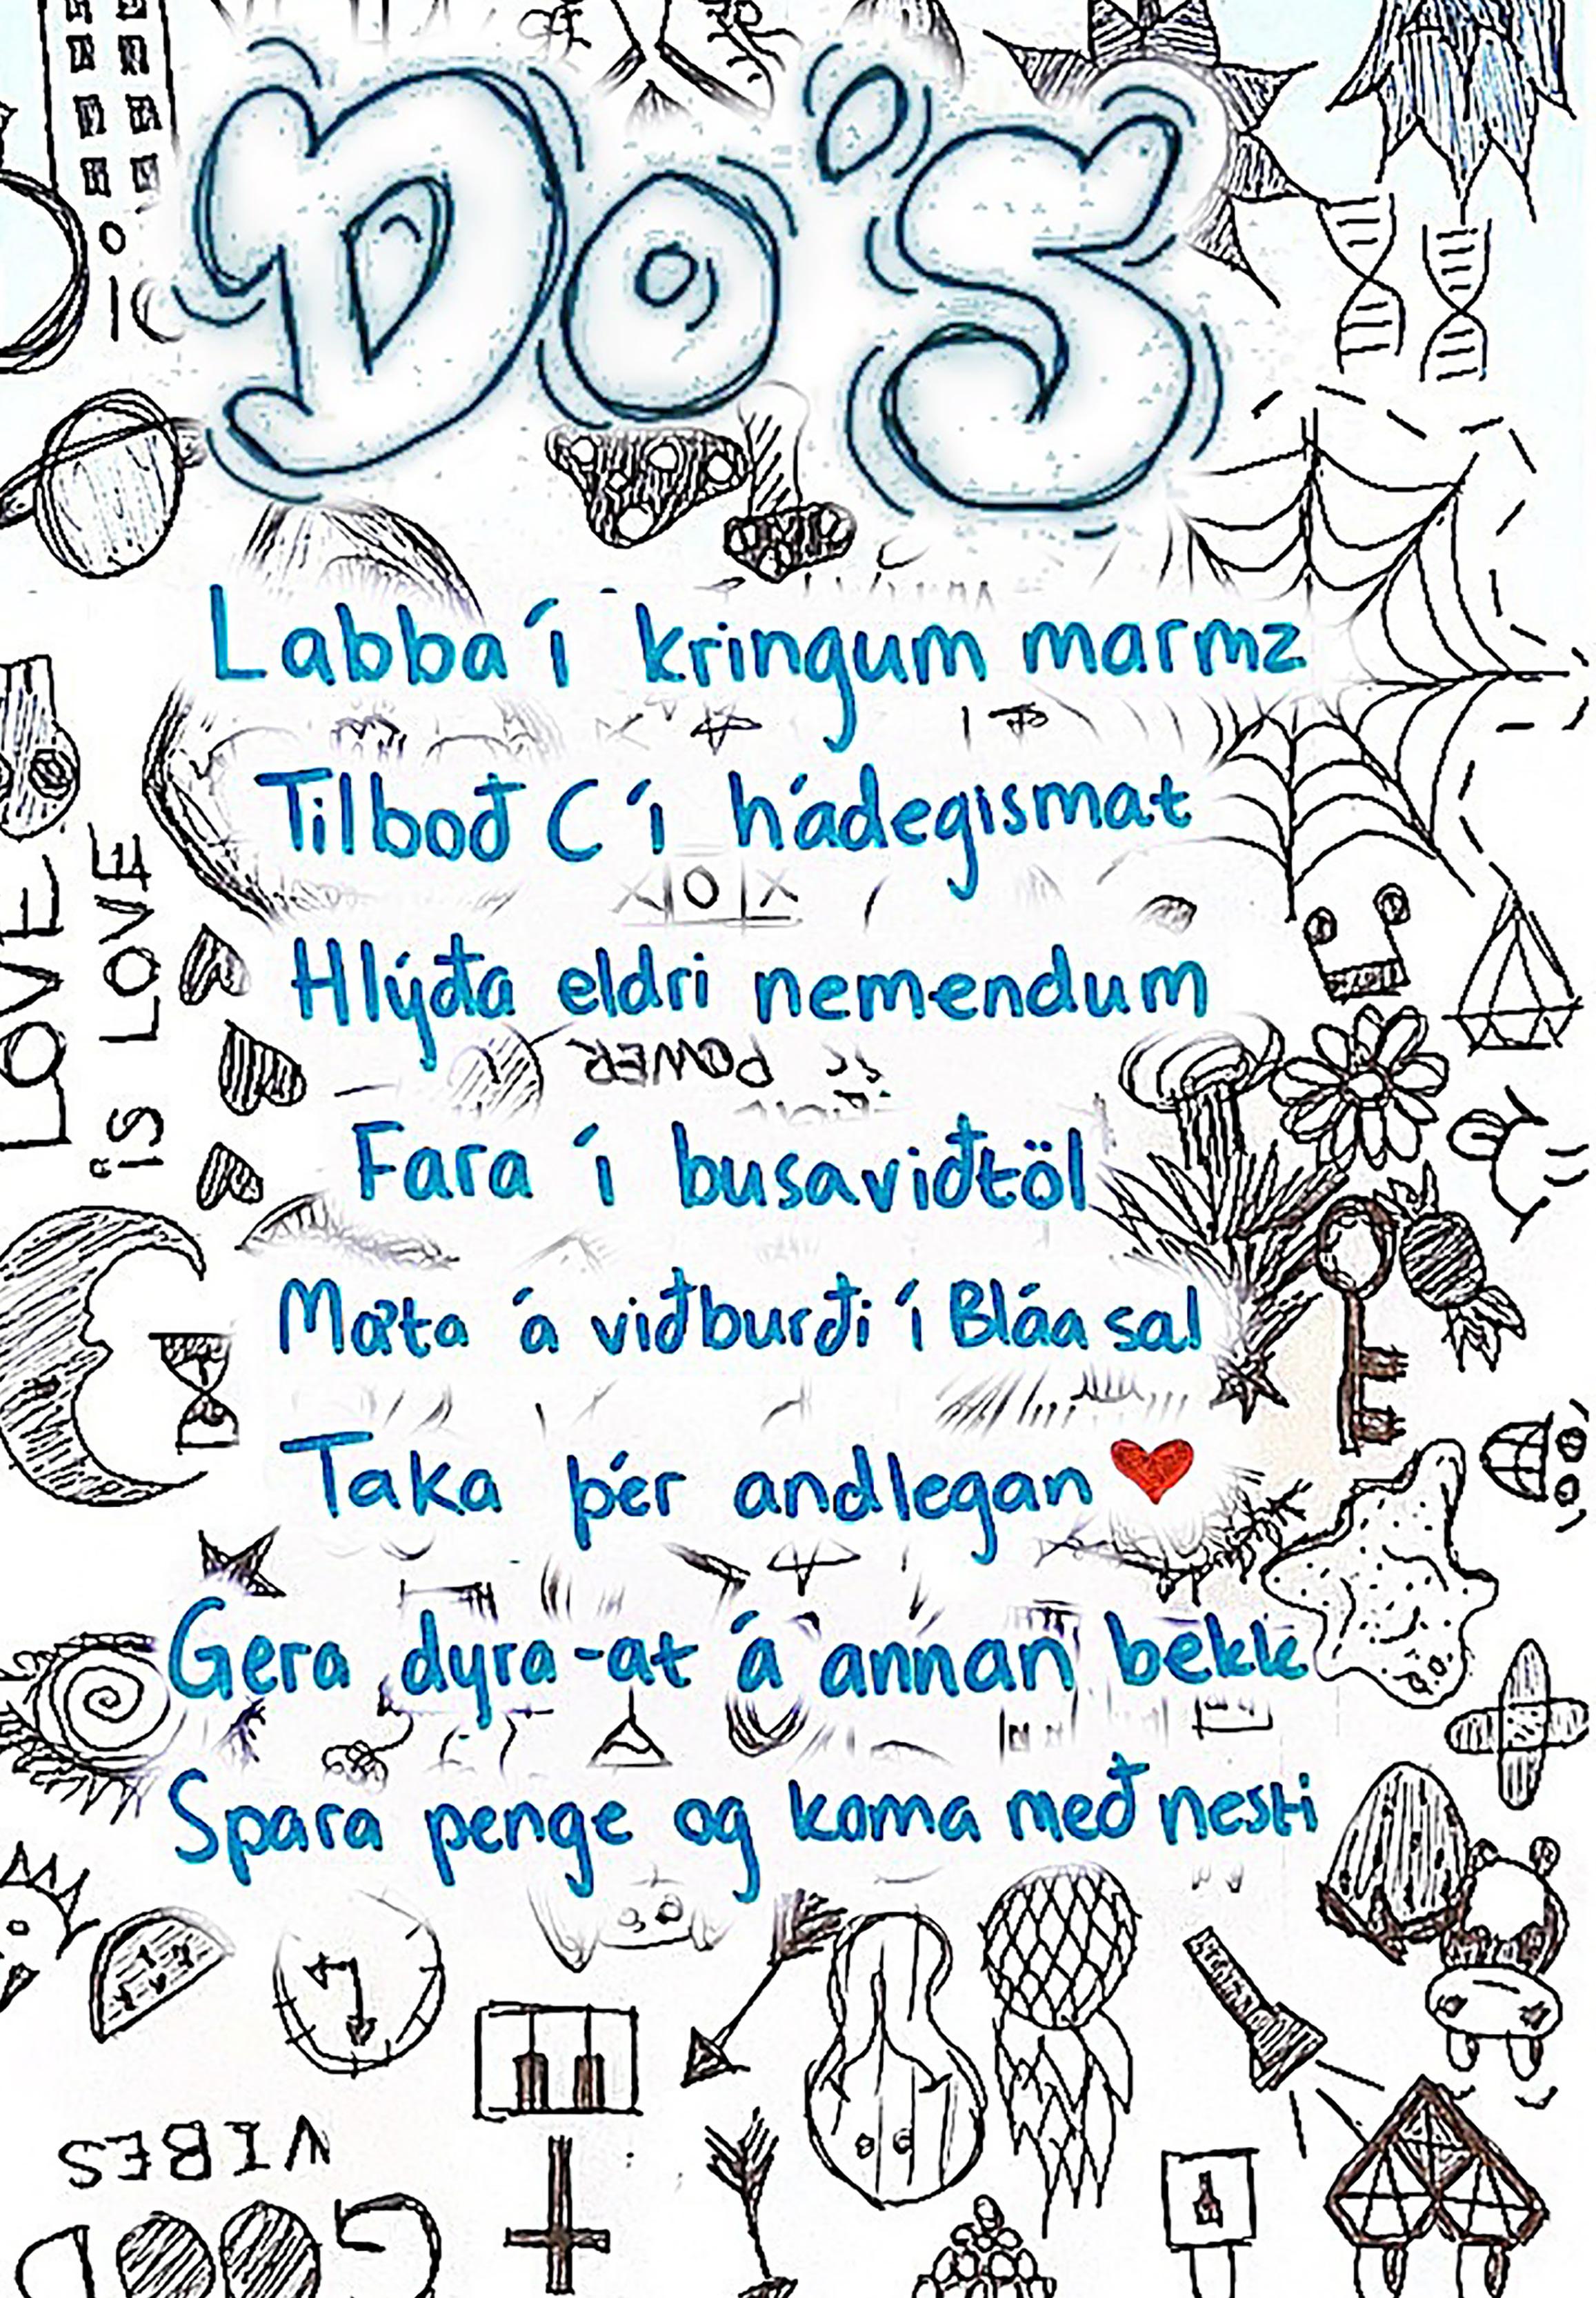 Do's
Labba í kringum marmz
Tilboð C í hádegismat
LOVE
IS LOVE
X O X
Hlýða eldri nemendum
POWER
Fara í busaviðtöl
Mæta á viðburði í Bláa sal
Taka þér andlegan
Gera dyra-at á annan bekk
Spara penge og koma með nesti
GOOD
VIBES